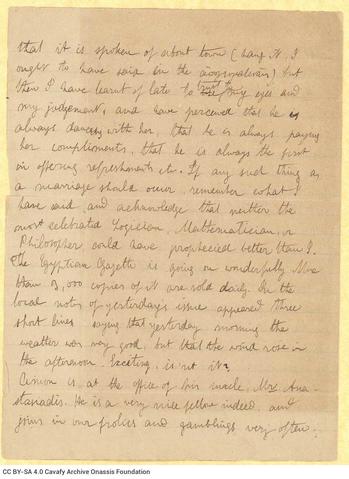 that it is spoken of about town (hang it, I
ought to have said in the) but
then I have learnt of late to trust my eyes and
my judgement, and have perceived that he is
always dancing with her, that he is always paying
her compliments, that he is always the first
in offering refreshments etc. If any such thing as
a marriage should occur, remember what I
have said, and acknowledge that neither the
most celebrated Logician, Mathematician, or
Philosopher could have prophecied better than I.
The Egyptian Gazette is going on wonderfully. More
than 3,000 copies of it are sold daily. In the
local notes of yesterday's issue appeared three
short lines saying that yesterday morning the
weather was very good, but that the wind rose in
the afternoon. Exciting, is it not?
Cimon is at the office of his uncle, Mr. Ana-
stasiadis. He is a very nice fellow indeed, and
joins in our frolics and gamblings very often.
CC BY-SA 4.0 Cavafy Archive Onassis Foundation